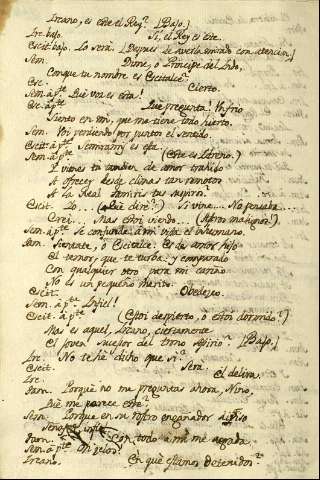 Ircano, es este el Rey? [Bajo.]
Irc. bajo. Si, el Rey es este.
Escit. bajo. Lo será. [Despues de averla mirado con atencion.]
Sem. Dime, o Principe del Indo,
Conque tu nombre es Escitalce?
Esc. Cierto.
Sem. à pte. Qué voz es esta!
Esc. à pte. Que pregunta! Un frio
Siento en mi, que me tiene todo yerto.
Sem. Voi perdiendo por puntos el sentido.
Escit. à pte. Semiramis es esta.
Sem. à pte. (Este es Idreno.)
I vienes tu tambien de amor trahido
A ofrecer desde climas tan remotos
A la Real Tamiris tus
Escit. Lo.. (Qué diré?) Si vine... No pensaba..
Crei... Mas estoi viendo... (Astros malignos!)
Sem. à pte. Se confunde à mi vista el inhumano.
Sem. Sientate, ò Escitalce: Es de amor hijo
El temor, que te turba; y comparado
Con qualquier otro para mi cariño
No es un pequeño merito.
Escit. Obedezco.
Sem. à pte. Infiel!
Escit. à pte. (Estoi despierto, ò estoi dormido?)
Mas es aquel, Ircano, ciertamente
El joven sucesor del trono Asirio? [Bajo.]
Irc. No te he dicho que si?
Escit. Será.
Irc. El delira.
Tam. Porquè no me preguntas ahora, Nino,
Què me parece este?
Sem. Porque en su rostro engañador
infiel
Tam. Con todo à mi me agrada.
Sem. à pte.
Ircano. En què estamos detenidos?